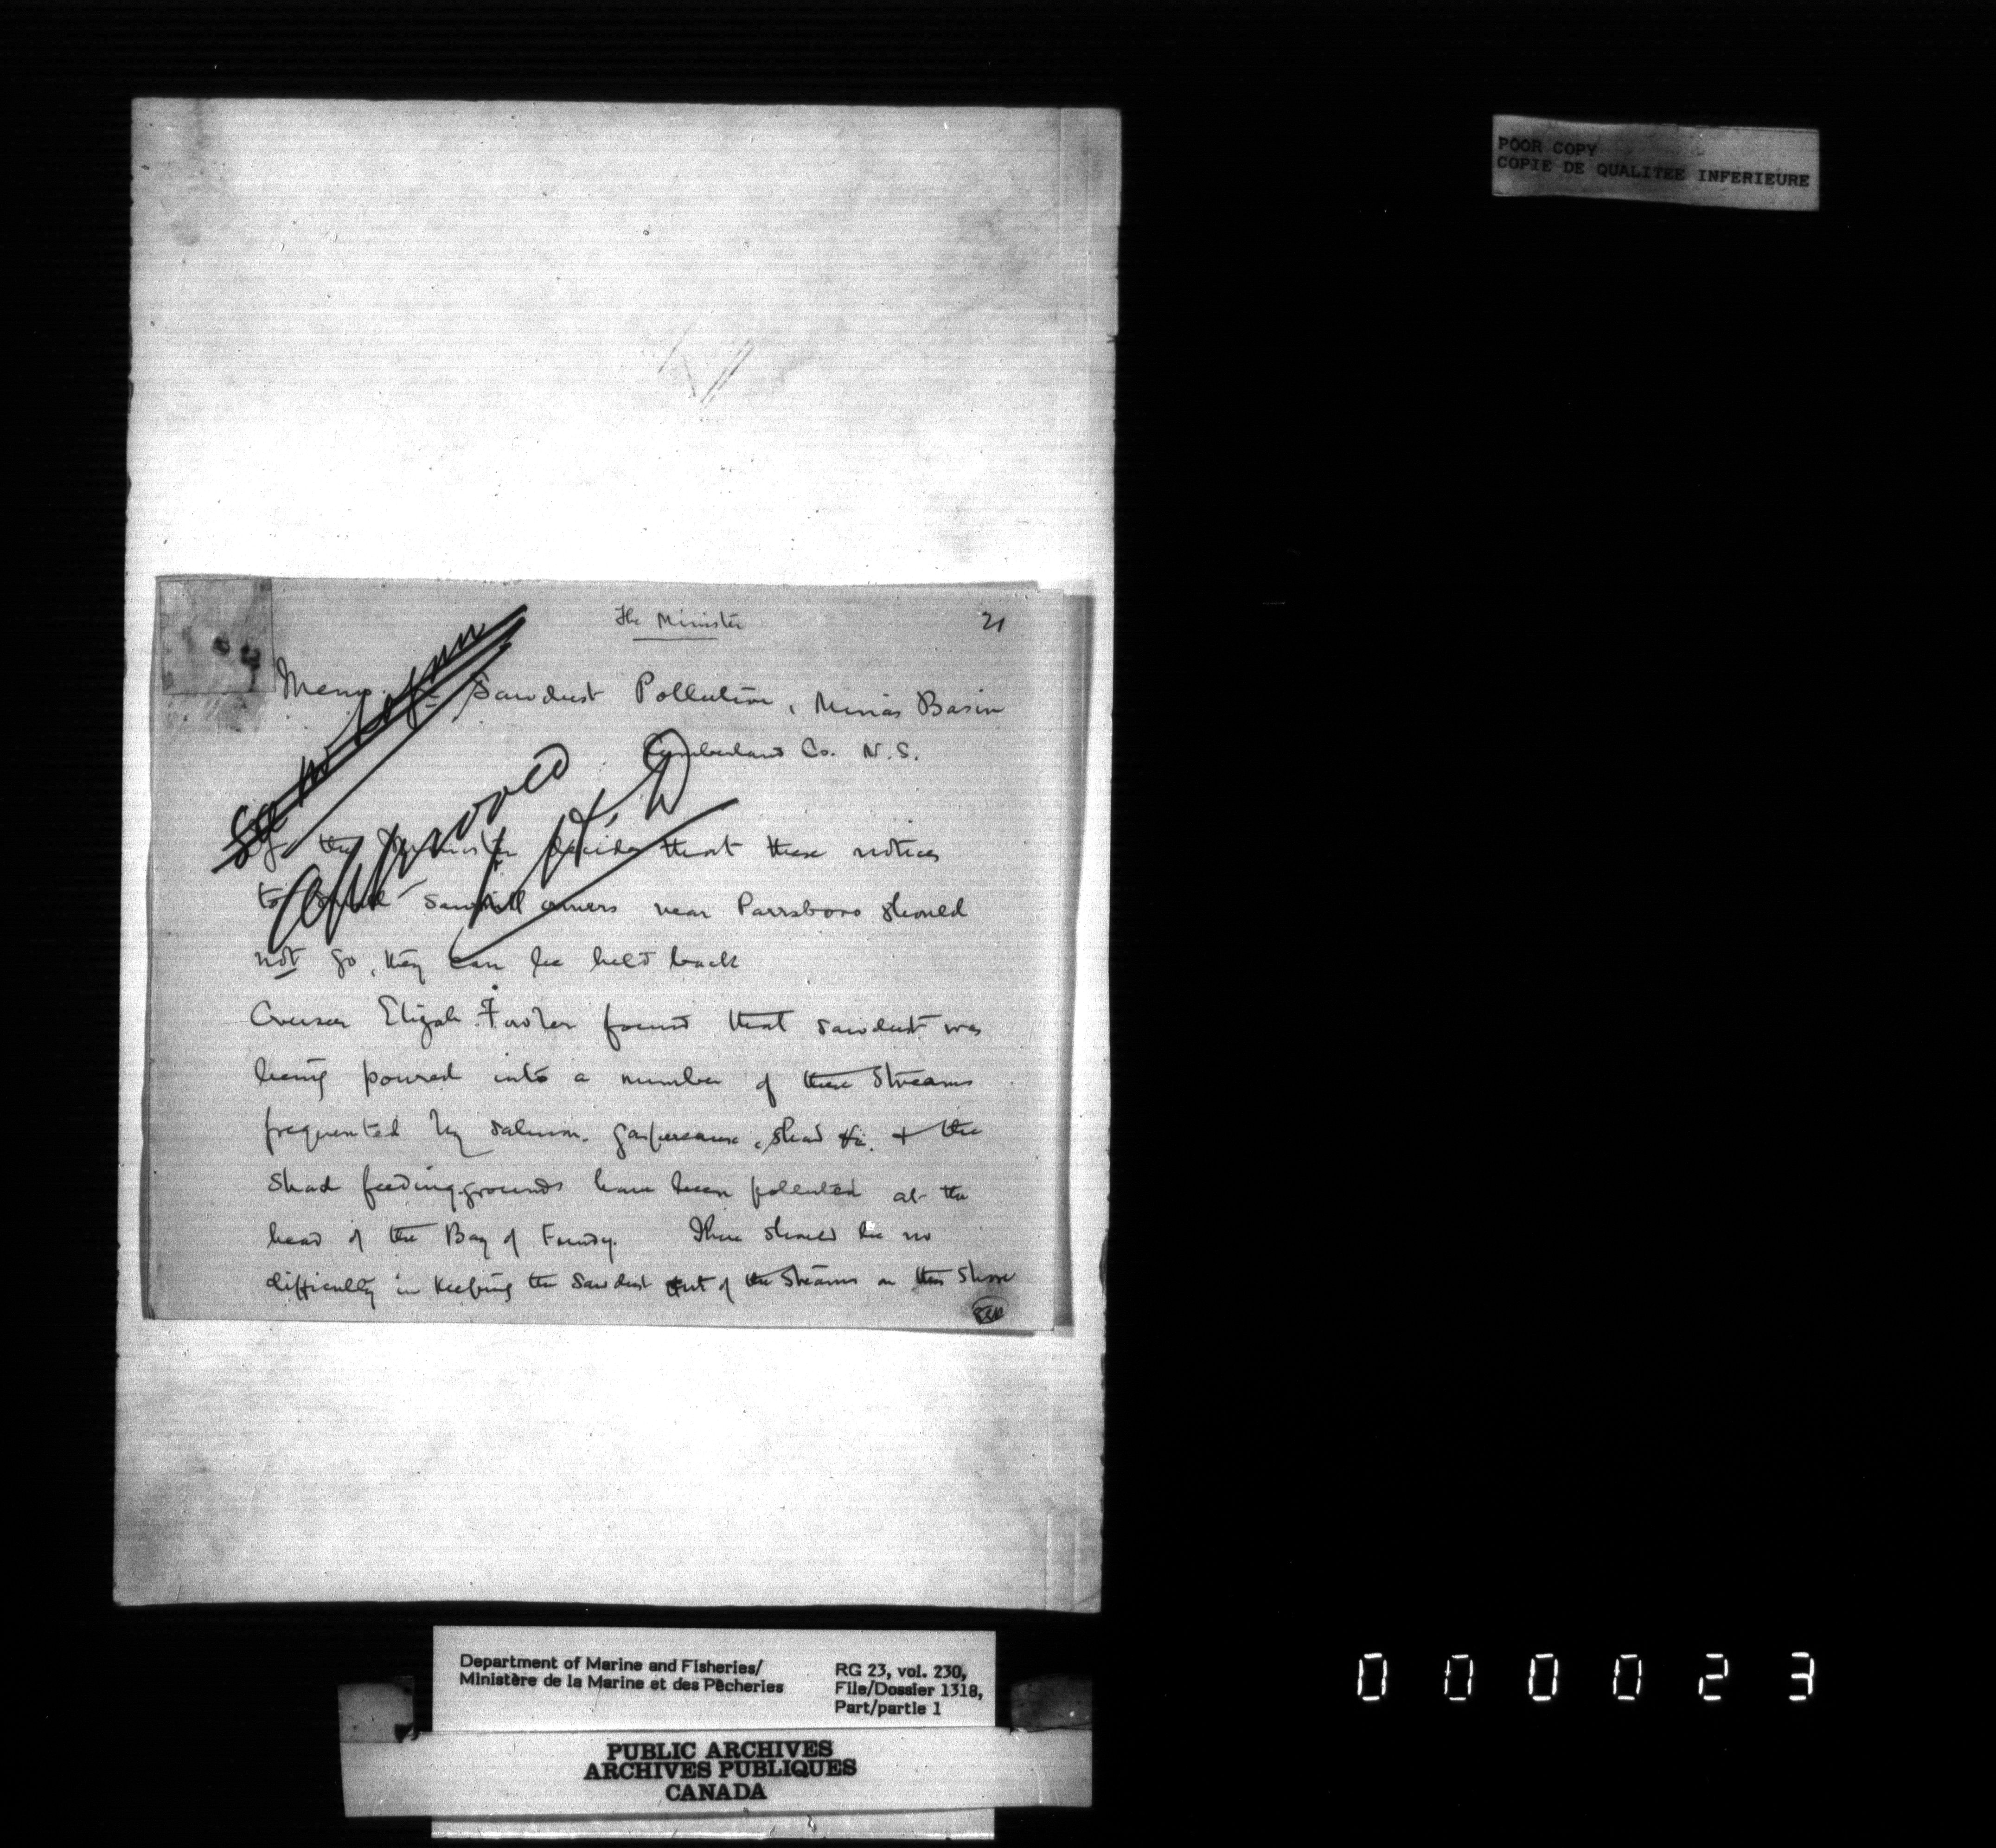 POOR COPY
COPIE DE QUALITEE INFERIEURE
The Minister
21
Memo. Sawdust Pollution, Minas Basin
Cumberland Co. N.S.
Approved
If the Minister decides that these notices
to sawmill owners near Parrsboro should
not go, they can be held back
Overseer Elijah Fowler found that sawdust was
being poured into a number of these streams
frequented by salmon, gaspereaux, shad &c. + the
shad feeding grounds have been polluted at the
head of the Bay of Fundy. There should be no
difficulty in keeping the sawdust out of the streams on this shore
Department of Marine and Fisheries/
Ministère de la Marine et des Pêcheries
RG 23, vol. 230,
File/Dossier 1318,
Part/partie 1
PUBLIC ARCHIVES
ARCHIVES PUBLIQUES
CANADA
000023